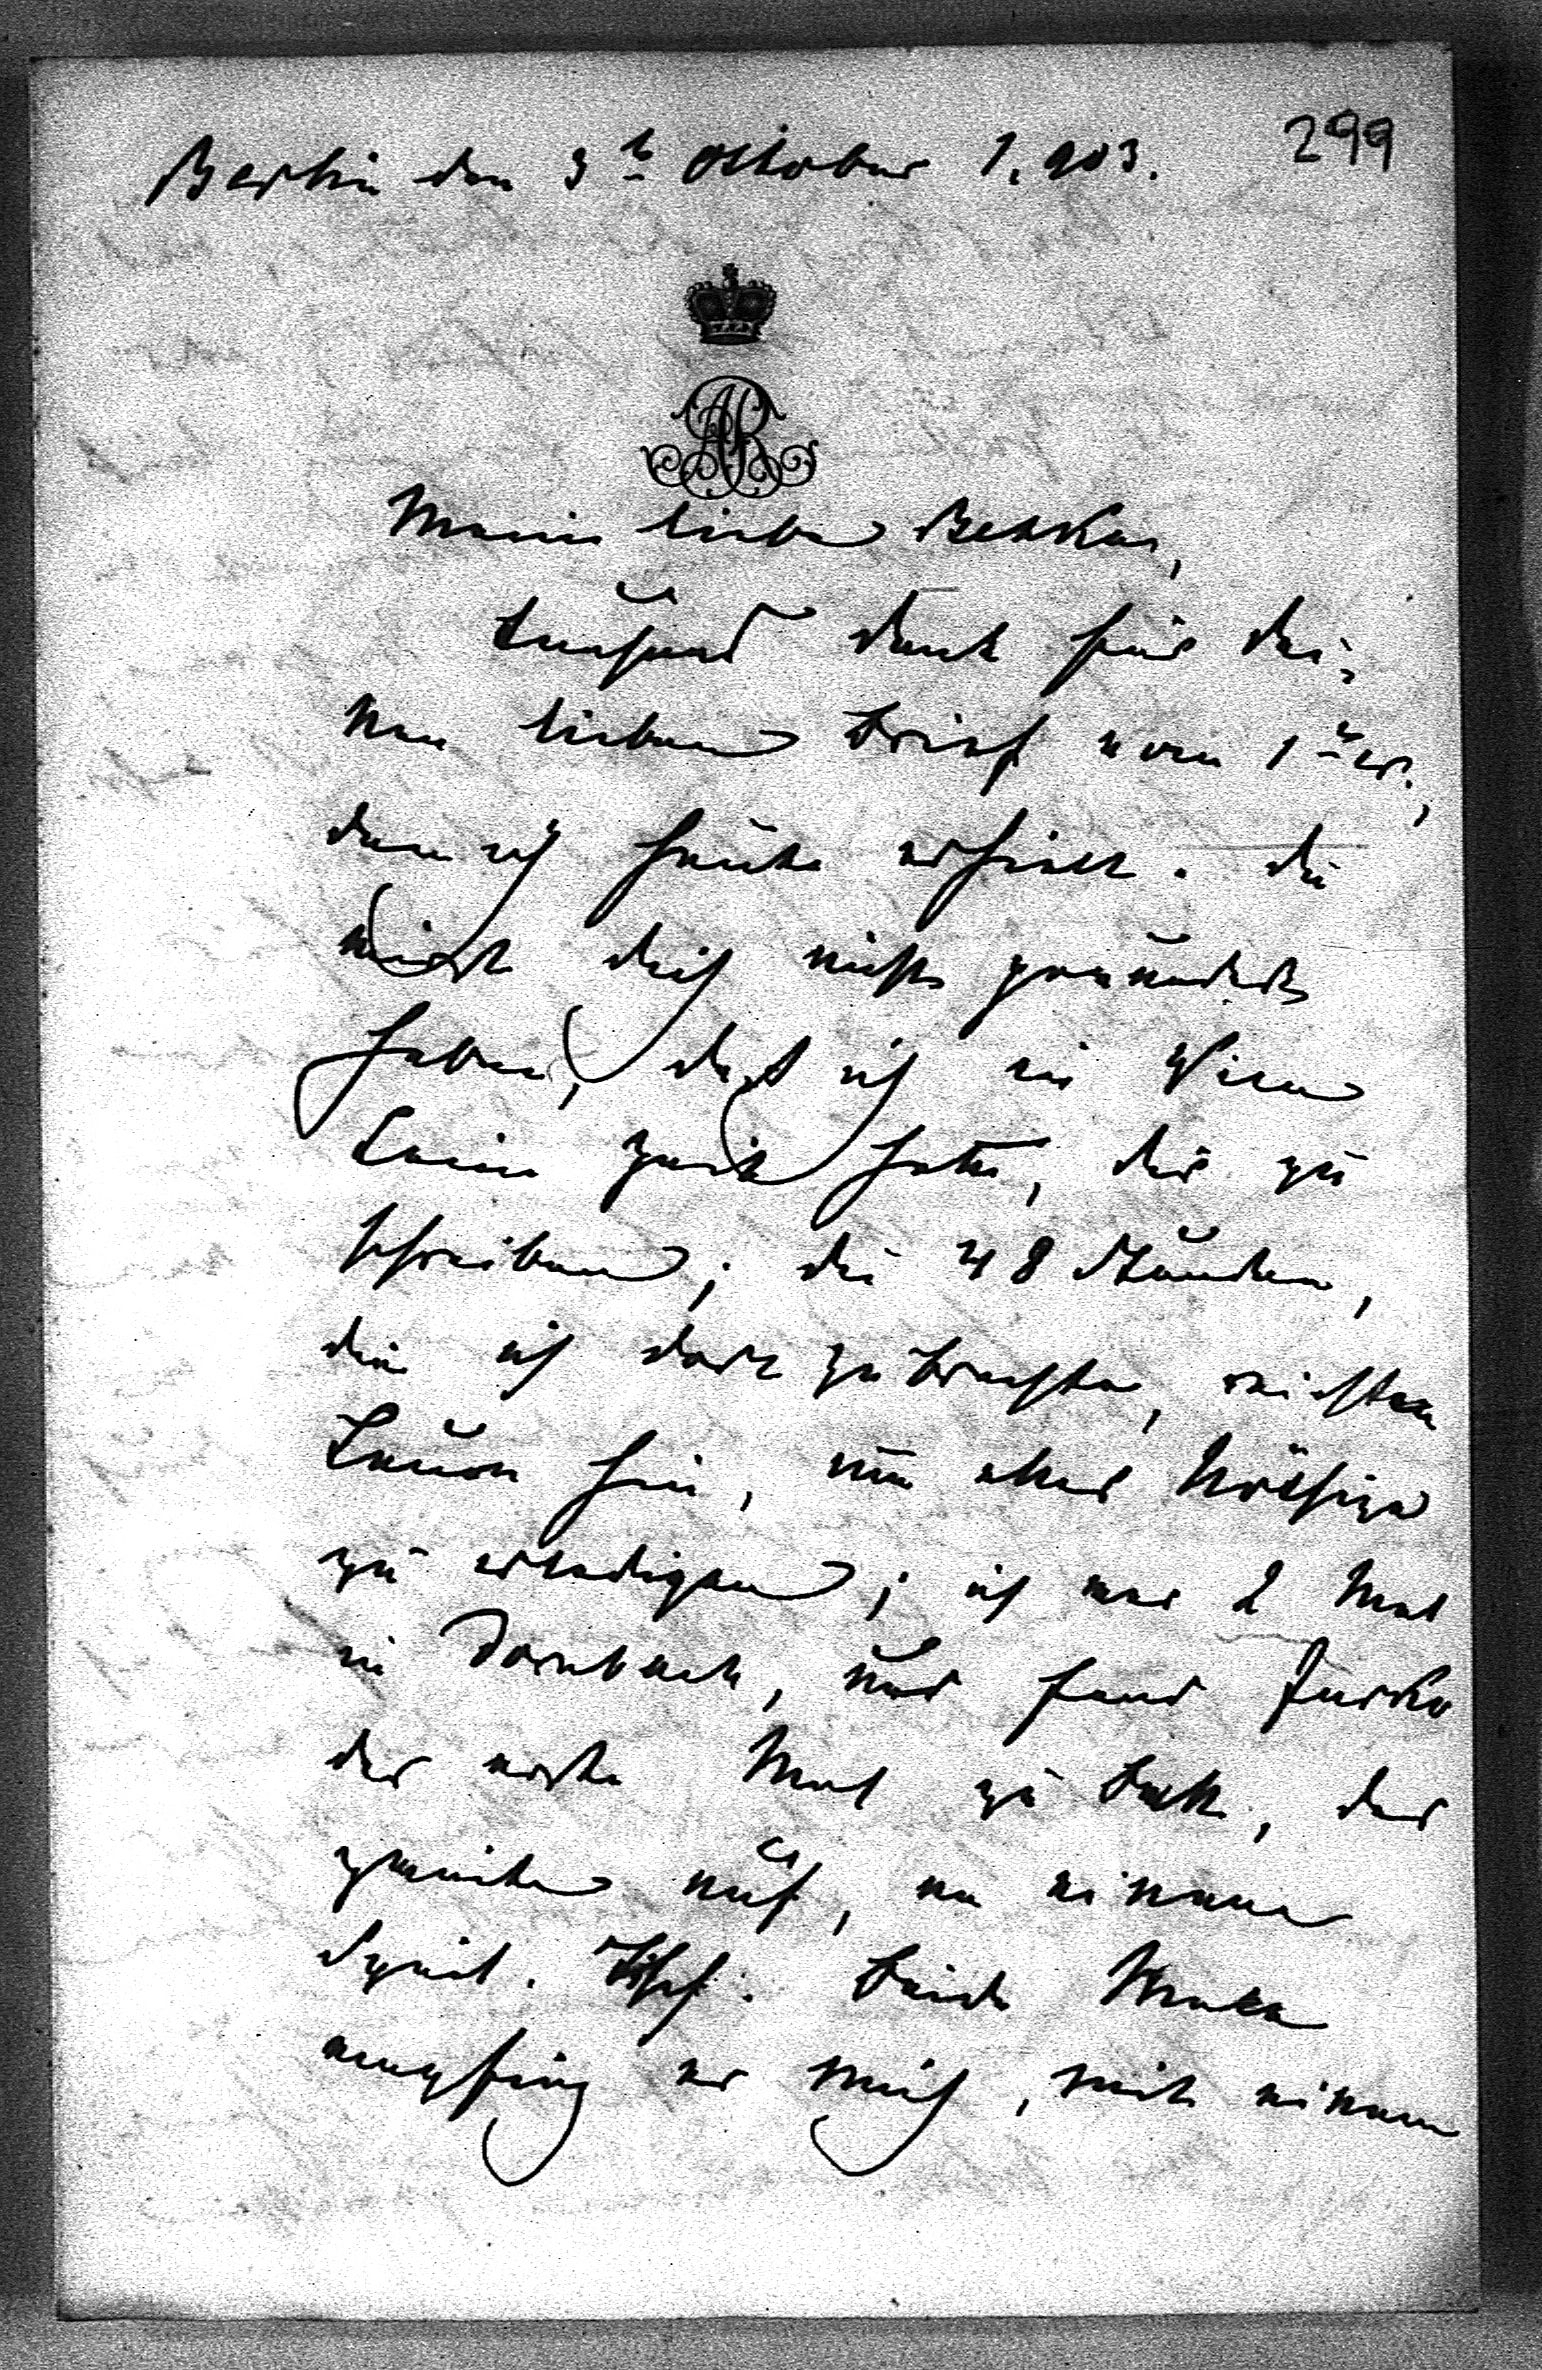 299
Berlin den 3t October 1.903.
AR
Meine liebe Betka,
tausend Dank für Dei-
nen lieben Brief vom 1ten,
den ich heute erhielt. Du
wirst Dich nicht gewundert
haben, daß ich in Wien
keine Zeit hatte, Dir zu
schreiben; die 48 Stunden,
die ich dort zubrachte, reichten
kaum hin, um alles Nöthige
zu erledigen; ich war 2 Mal
in Dornbach, und fand Jurko
das erste Mal zu Bett, das
zweite auf, an einem
Spieltisch. Beide Male
empfing er mich, mit einem